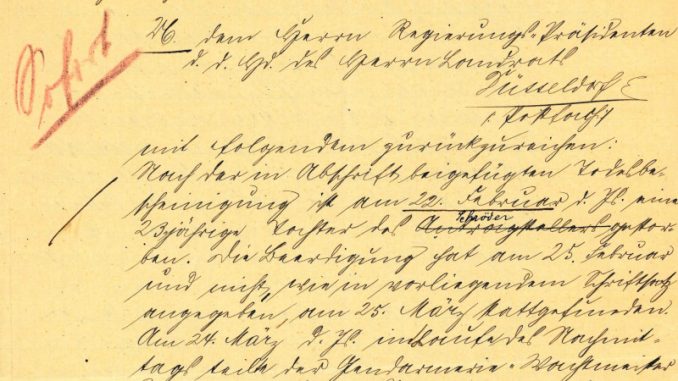 Sofort
dem Herrn Regierungs-Präsidenten
d. d. Hd. des Herrn Landrats
Düsseldorf
mit folgendem zurückzureichen:
Nach der in Abschrift beigefügten Todesbe-
scheinigung ist am 22. Februar d. Js. eine
Schröder
23jährige Tochter des Antragstellers gestor-
ben. Die Beerdigung hat am 25. Februar
und nicht, wie in vorliegendem Schriftsatz
angegeben, am 25. März stattgefunden.
Am 24. März d. Js. im Laufe des Nachmit-
tags teilte der Gendarmerie-Wachtmeister